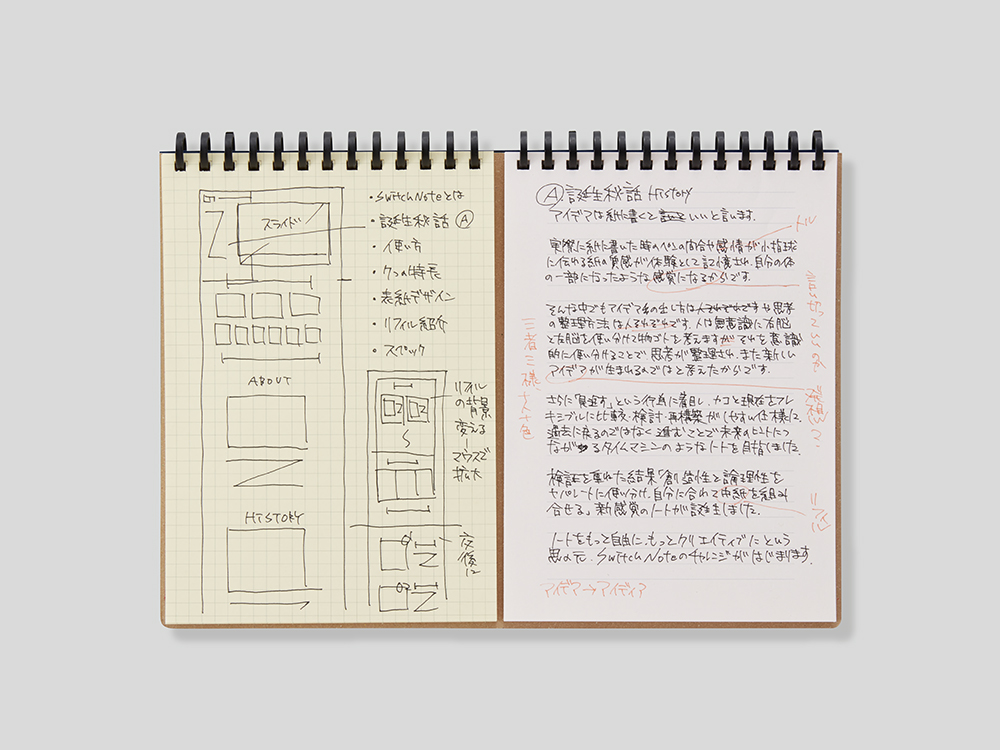 スライド
ABOUT
HISTORY
・SwitchNoteとは
・誕生秘話 Ⓐ
・使い方
・7つの特長
・表紙デザイン
・リフィル紹介
・スペック
リフィル
の背景
変える
マウスで
拡大
交後に
Ⓐ 誕生秘話 HISTORY
アイデアは紙に書くといいと言います。
トル
実際に紙に書いた時のペンの具合や感情が小指球
に伝わる紙の質感が体験として記憶され、自分の体
の一部になったような感覚になるからです。
そんな中でもアイデアの出し方は人それぞれですや思考
の整理方法は人それぞれです。人は無意識に右脳
と左脳を使い分けて物ゴトを考えますがそれを意識
的に使い分けることで思考が整理され、また新しい
アイデアが生まれるのではと考えたからです。
三者三様、十人十色
さらに「見返す」という行為に着目し、カコと現在をフレ
キシブルに比較・検討・再構築がしやすい仕様に。
過去に戻るのではなく進むことで未来のヒントにつ
ながるタイムマシンのようなノートを目指しました。
検証を重ねた結果「創造性と論理性を
セパレートに使い分け、自分に合わせて中紙を組み
合せる」新感覚のノートが誕生しました。
リフィル
ノートをもっと自由に、もっとクリエイティブにという
思いの元、SwitchNoteのチャレンジがはじまります。
アイデア→アイディア